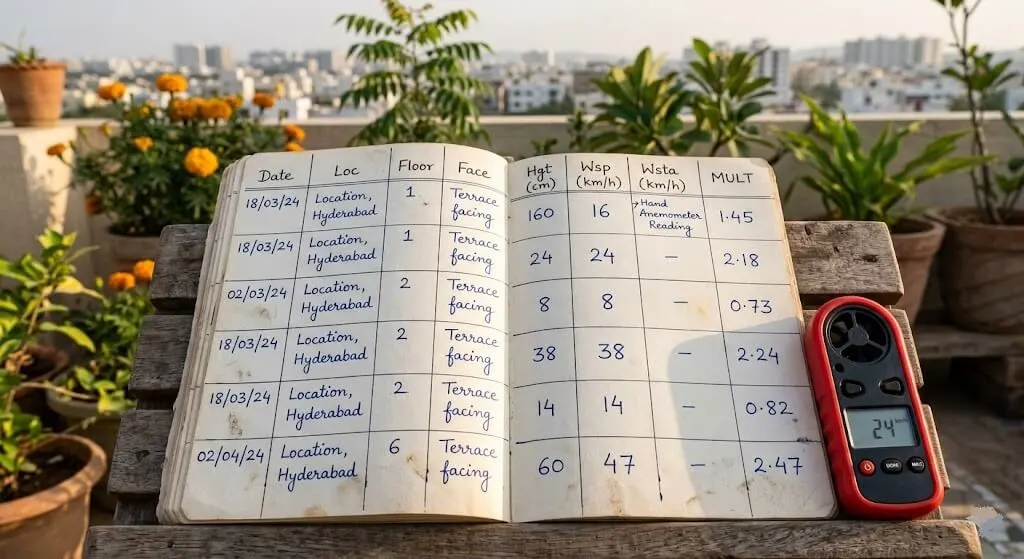 Date Loc Floor Face Hgt (cm) Wsp (km/h) Wsta (km/h) MULT
18/03/24 Location, Hyderabad 1 Terrace facing 160 16 Hand Anemometer Reading 1.45
18/03/24 Location, Hyderabad 1 Terrace facing 24 24 – 2.18
02/03/24 Location, Hyderabad 2 Terrace facing 8 8 – 0.73
18/03/24 Location, Hyderabad 2 Terrace facing 38 38 – 2.24
18/03/24 Location, Hyderabad 2 Terrace facing 14 14 – 0.82
02/04/24 Location, Hyderabad 6 Terrace facing 60 47 – 2.47
24